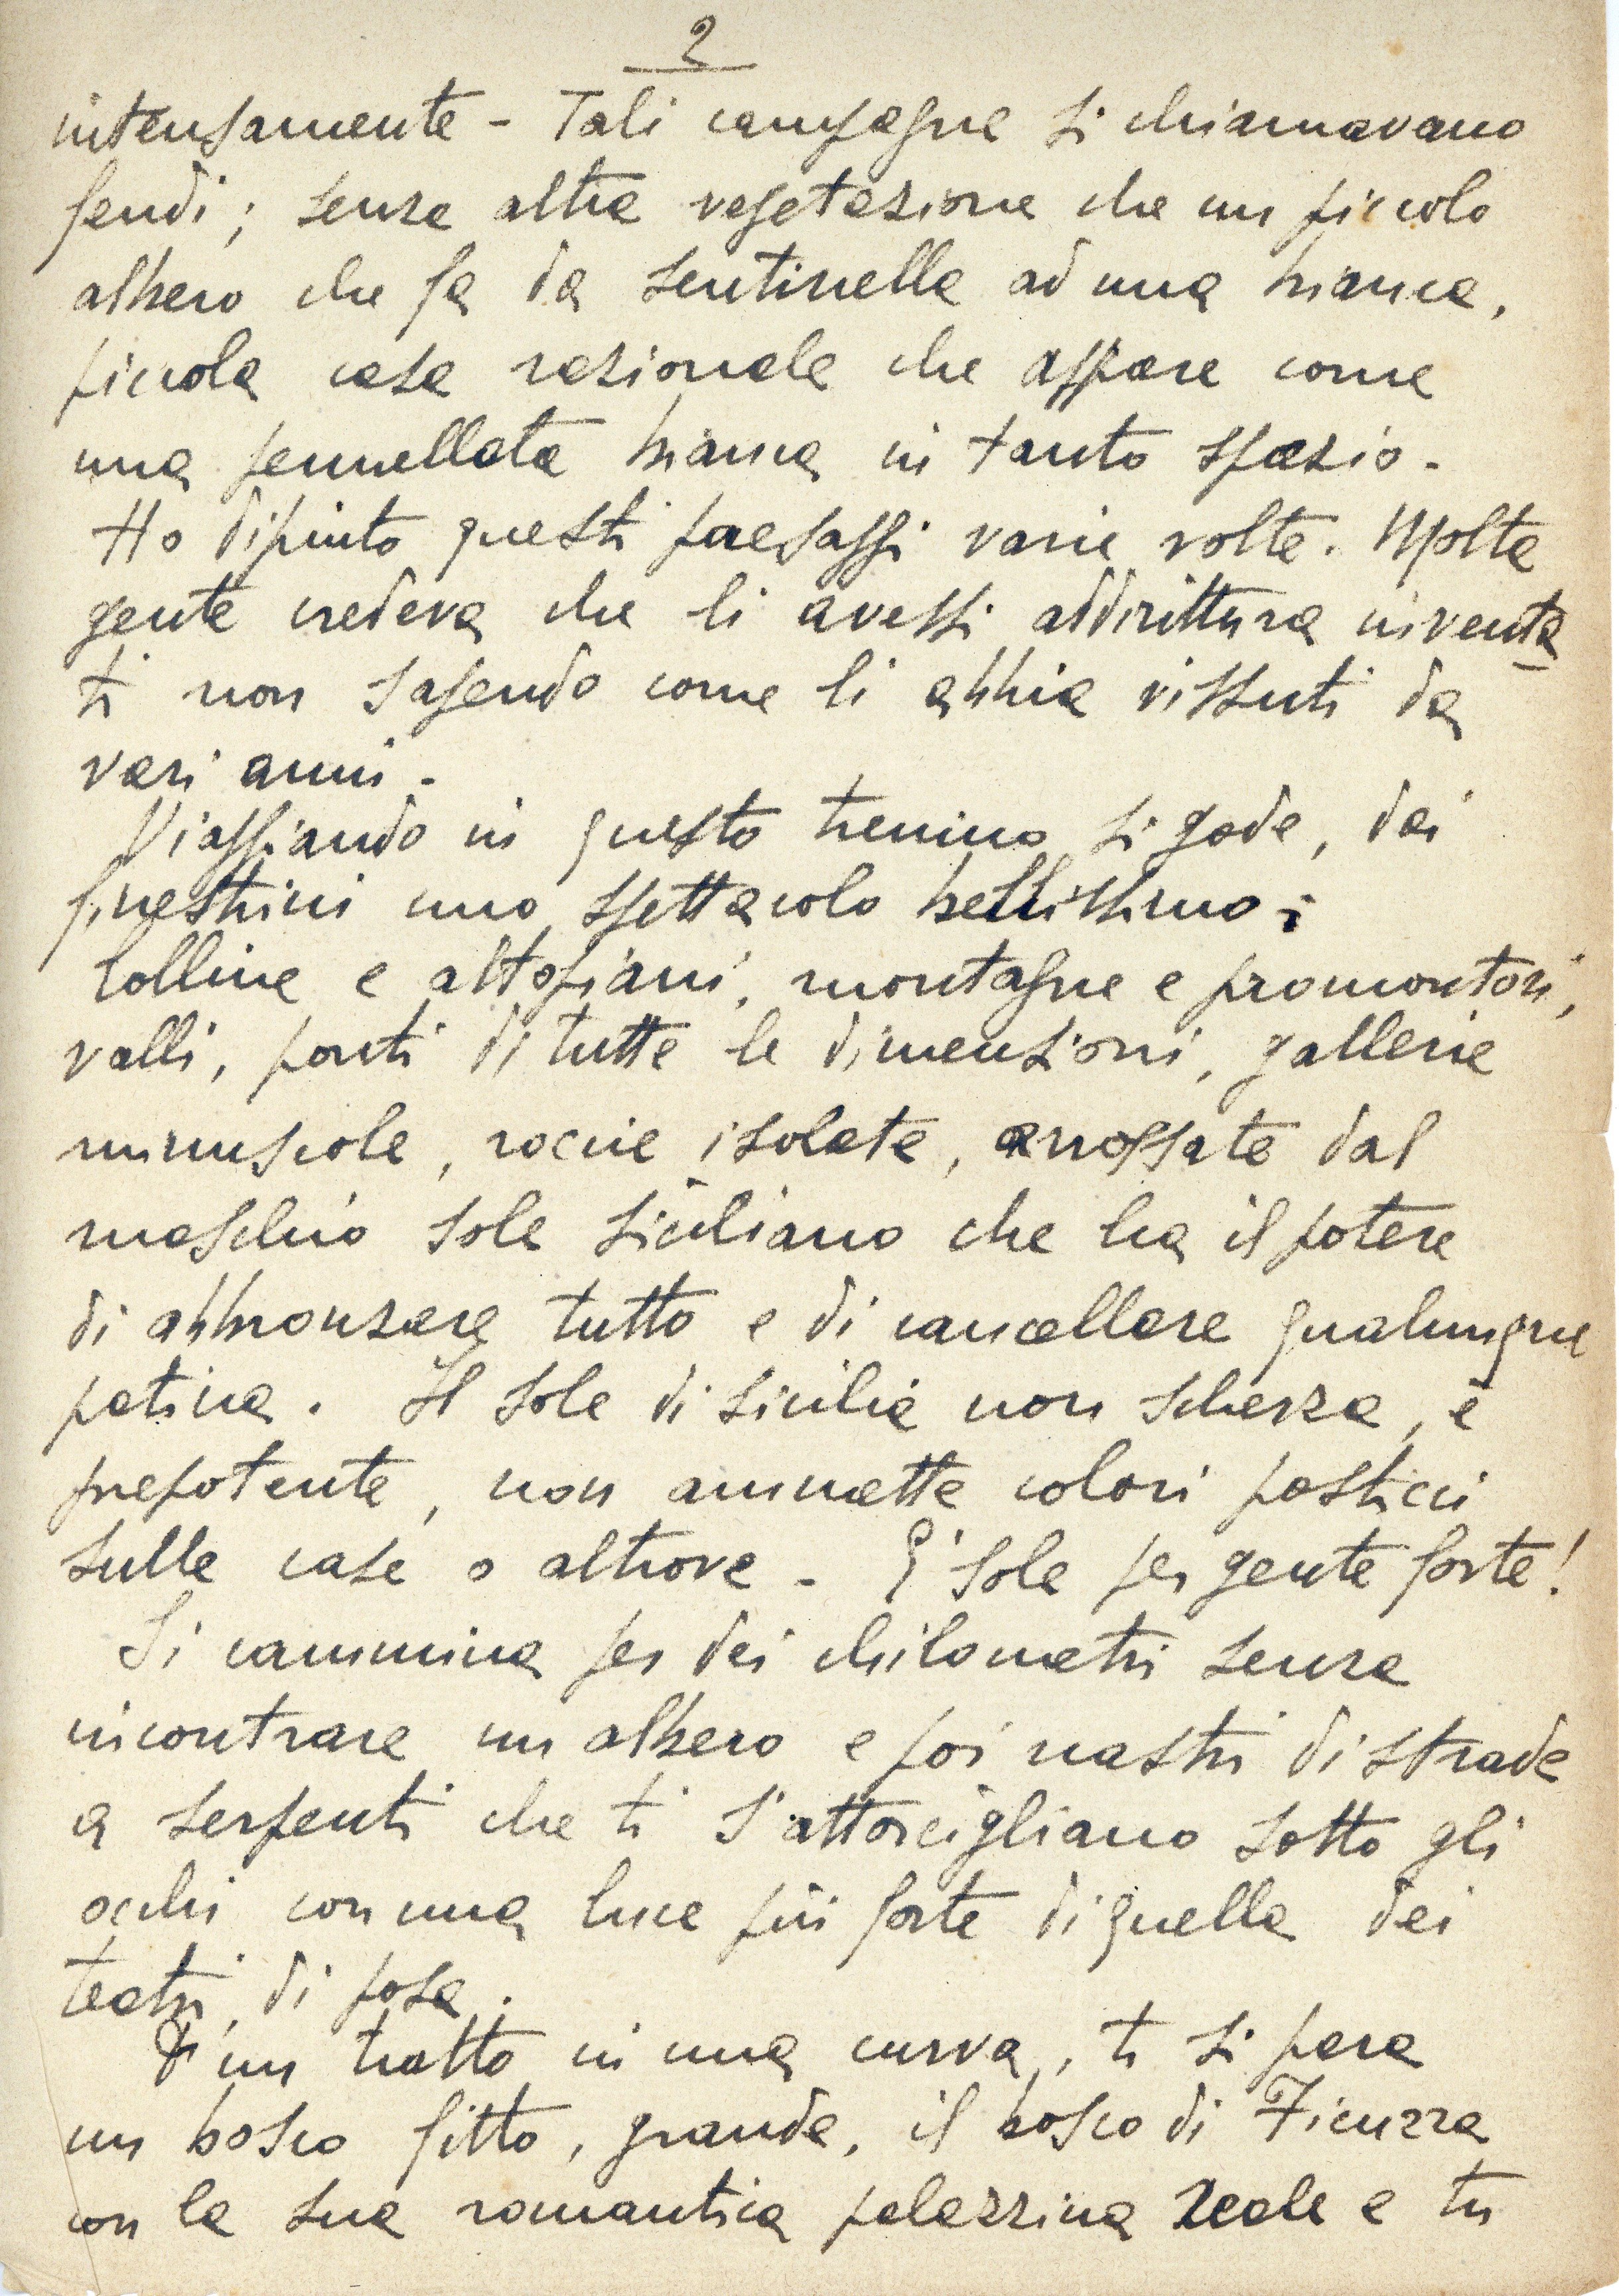 2
intensamente - Tali campagne si chiamavano
feudi; senza altra vegetazione che un piccolo
albero che fa da sentinella ad una bianca,
piccola casa razionale che appare come
una pennellata bianca in tanto spazio -
Ho dipinto questi paesaggi varie volte. Molta
gente credeva che li avessi addirittura inventa
ti non sapendo come li abbia vissuti da
vari anni -
Viaggiando in questo trenino si gode, dai
finestrini uno spettacolo bellissimo:
Colline e altopiani, montagne e promontori,
valli, ponti di tutte le dimensioni, gallerie
minuscole, roccie isolate, arrossate dal
maschio sole siciliano che ha il potere
di abbronzare tutto e di cancellare qualunque
patina. Il sole di Sicilia non scherza, è
prepotente, non ammette colori posticci
sulle case o altrove - E' sole per gente forte!
Si cammina per dei chilometri senza
incontrare un albero e poi nastri di strade
a serpenti che ti s'attorcigliano sotto gli
occhi con una luce più forte di quella dei
teatri di posa.
D'un tratto in una curva, ti si para
un bosco fitto, grande, il bosco di Ficuzza
con la sua romantica palazzina Reale e tu